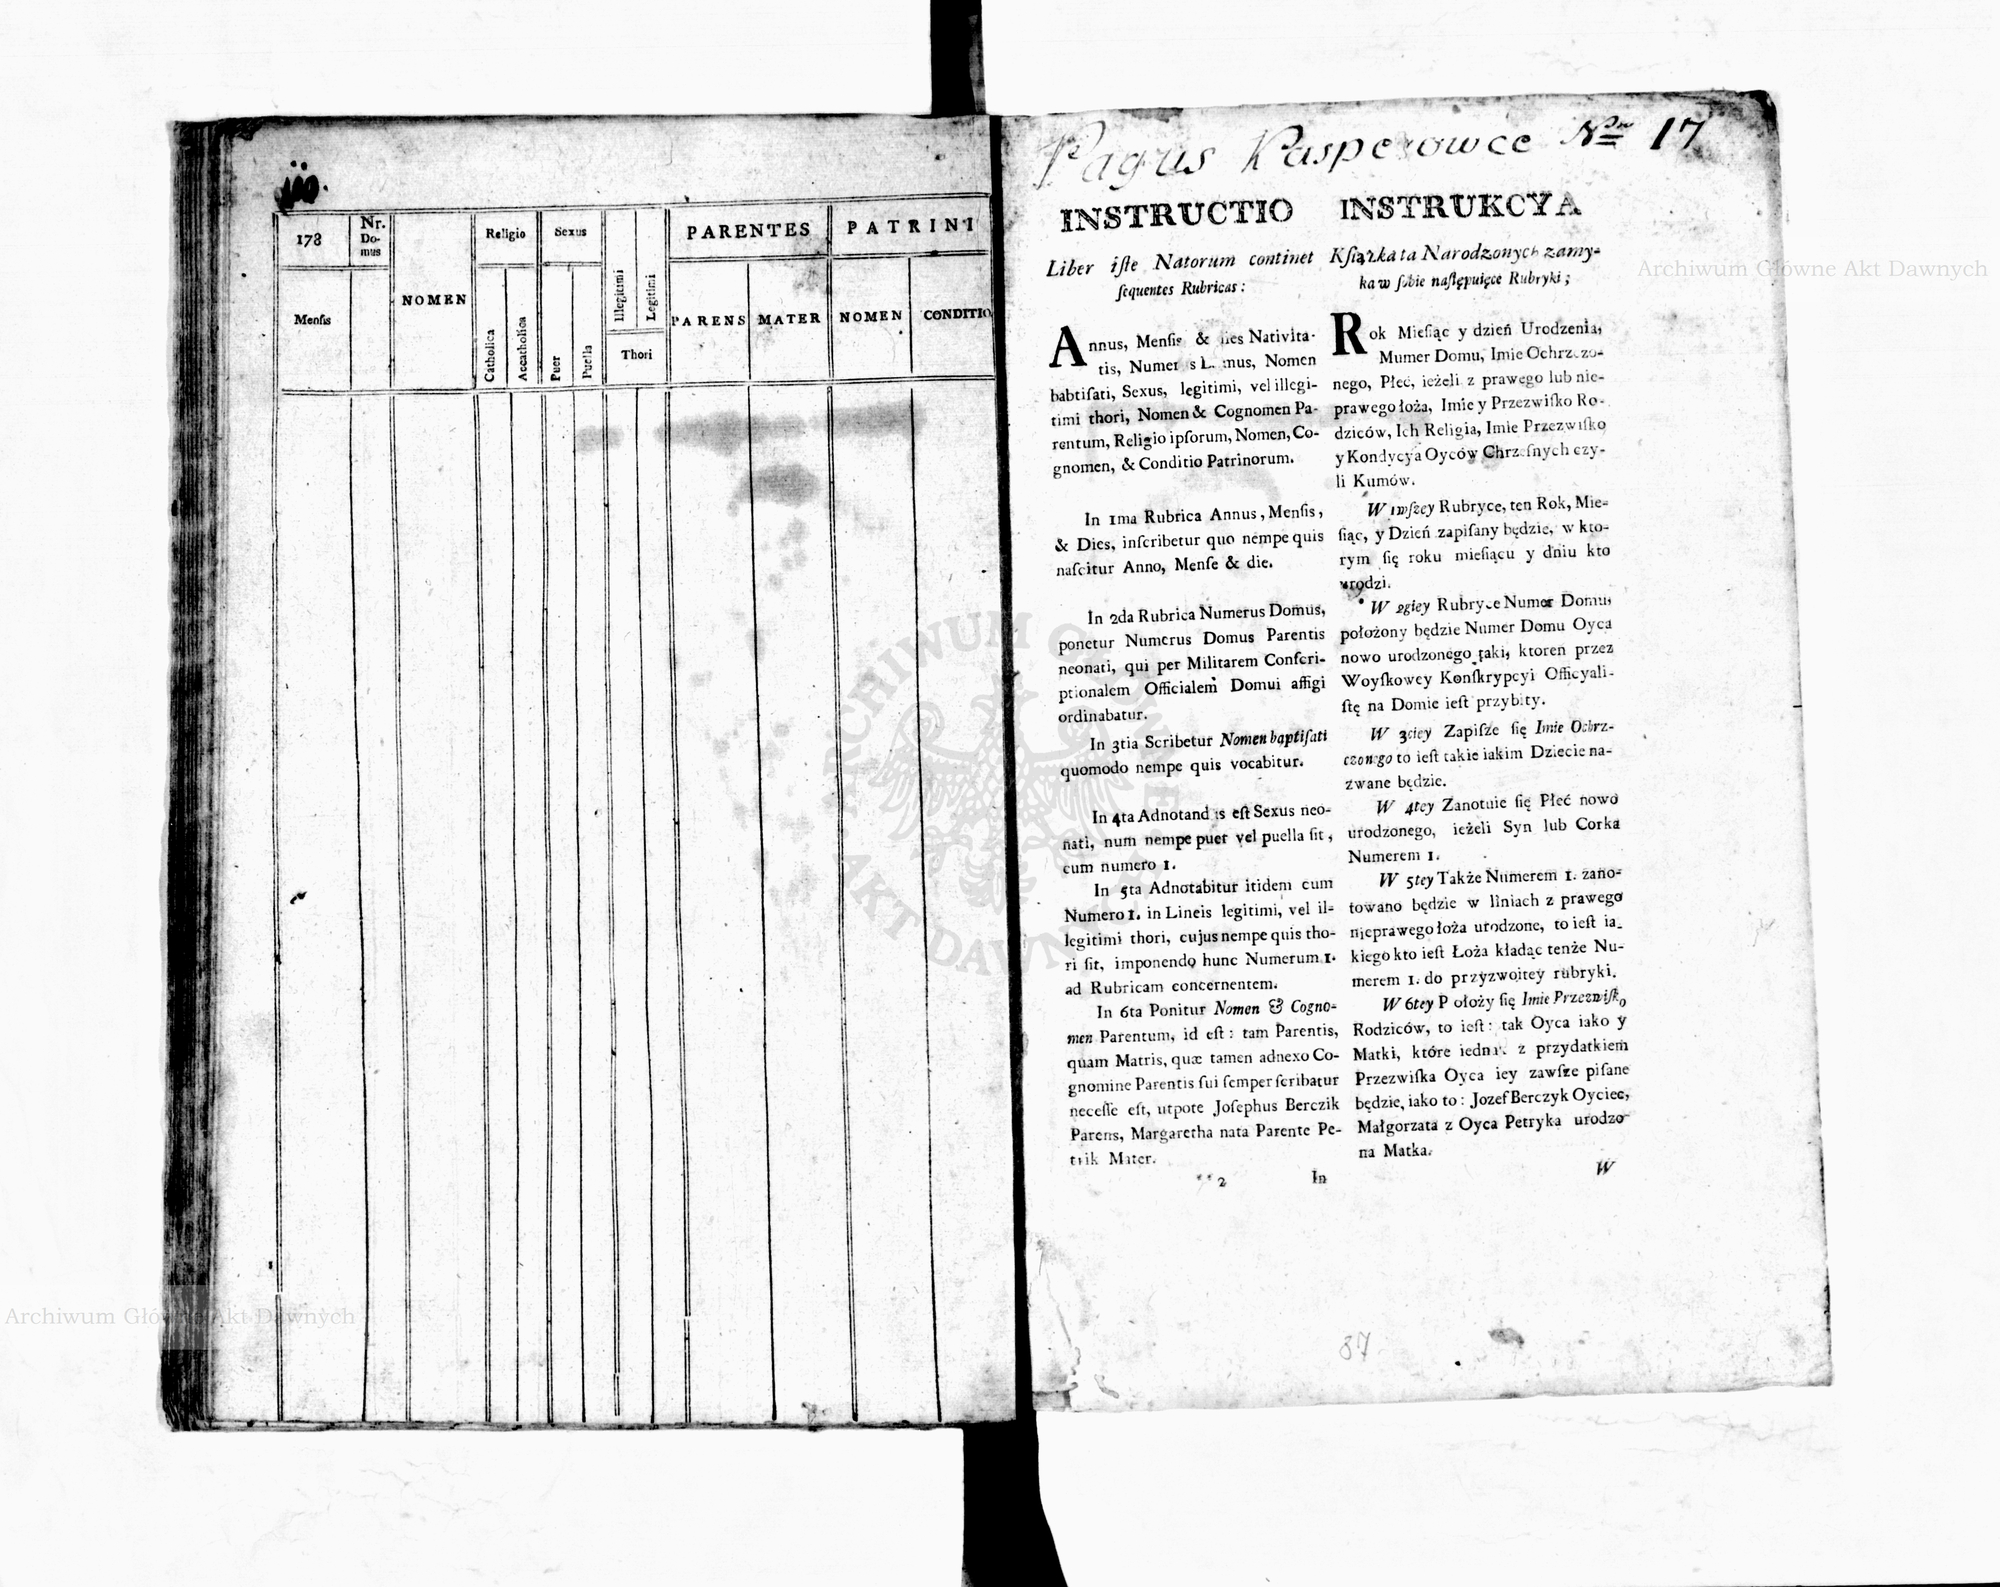 178
Nr.
Do-
mus
NOMEN
Religio
Sexus
Illegitimi
Legitimi
PARENTES
PATRINI
Mensis
Catholica
Accatholica
Puer
Puella
Thori
PARENS
MATER
NOMEN
CONDITIO
Pagus Kasperowce Nro 17
INSTRUCTIO
Liber iſte Natorum continet
ſequentes Rubricas:
Annus, Menſis & dies Nativita-
tis, Numerus Domus, Nomen
babtiſati, Sexus, legitimi, vel illegi-
timi thori, Nomen & Cognomen Pa-
rentum, Religio ipſorum, Nomen, Co-
gnomen, & Conditio Patrinorum.
In 1ma Rubrica Annus, Menſis,
& Dies, inſcribetur quo nempe quis
naſcitur Anno, Menſe & die.
In 2da Rubrica Numerus Domus,
ponetur Numerus Domus Parentis
neonati, qui per Militarem Conſcri-
ptionalem Officialem Domui affigi
ordinabatur.
In 3tia Scribetur Nomen baptiſati
quomodo nempe quis vocabitur.
In 4ta Adnotandus eſt Sexus neo-
nati, num nempe puer vel puella ſit,
cum numero 1.
In 5ta Adnotabitur itidem cum
Numero 1. in Lineis legitimi, vel il-
legitimi thori, cujus nempe quis tho-
ri ſit, imponendo hunc Numerum 1.
ad Rubricam concernentem.
In 6ta Ponitur Nomen & Cogno-
men Parentum, id eſt: tam Parentis,
quam Matris, quæ tamen adnexo Co-
gnomine Parentis ſui ſemper ſcribatur
neceſſe eſt, utpote Joſephus Berczik
Parens, Margaretha nata Parente Pe-
trik Mater.
2
In
INSTRUKCYA
Kſiążka ta Narodzonych zamy-
ka w ſobie naſtępuięce Rubryki;
Rok Mieſiąc y dzień Urodzenia,
Mumer Domu, Imie Ochrzczo-
nego, Płeć, ieżeli z prawego lub nie-
prawego łoża, Imie y Przezwiſko Ro-
dziców, Ich Religia, Imie Przezwiſko
y Kondycya Oyców Chrzeſnych czy-
li Kumów.
W 1wſzey Rubryce, ten Rok, Mie-
ſiąc, y Dzień zapiſany będzie, w kto-
rym ſię roku mieſiącu y dniu kto
urodzi.
W 2giey Rubryce Numer Domu
położony będzie Numer Domu Oyca
nowo urodzonego taki, ktoren przez
Woyſkowey Konſkrypcyi Officyali-
ſtę na Domie ieſt przybity.
W 3ciey Zapiſze ſię Imie Ochrz-
czonego to ieſt takie iakim Dziecie na-
zwane będzie.
W 4tey Zanotuie ſię Płeć nowo
urodzonego, ieżeli Syn lub Corka
Numerem 1.
W 5tey Także Numerem 1. zano-
towano będzie w liniach z prawego
nieprawego łoża urodzone, to ieſt ia-
kiego kto ieſt Łoża kładąc tenże Nu-
merem 1. do przyzwoitey rubryki.
W 6tey Położy ſię Imie Przezwiſko
Rodziców, to ieſt: tak Oyca iako y
Matki, które iednak z przydatkiem
Przezwiſka Oyca iey zawſze piſane
będzie, iako to: Jozef Berczyk Oyciec,
Małgorzata z Oyca Petryka urodzo-
na Matka.
W
87
Archiwum Główne Akt Dawnych
Archiwum Główne Akt Dawnych
ARCHIWUM GŁÓWNE
AKT DAWNYCH